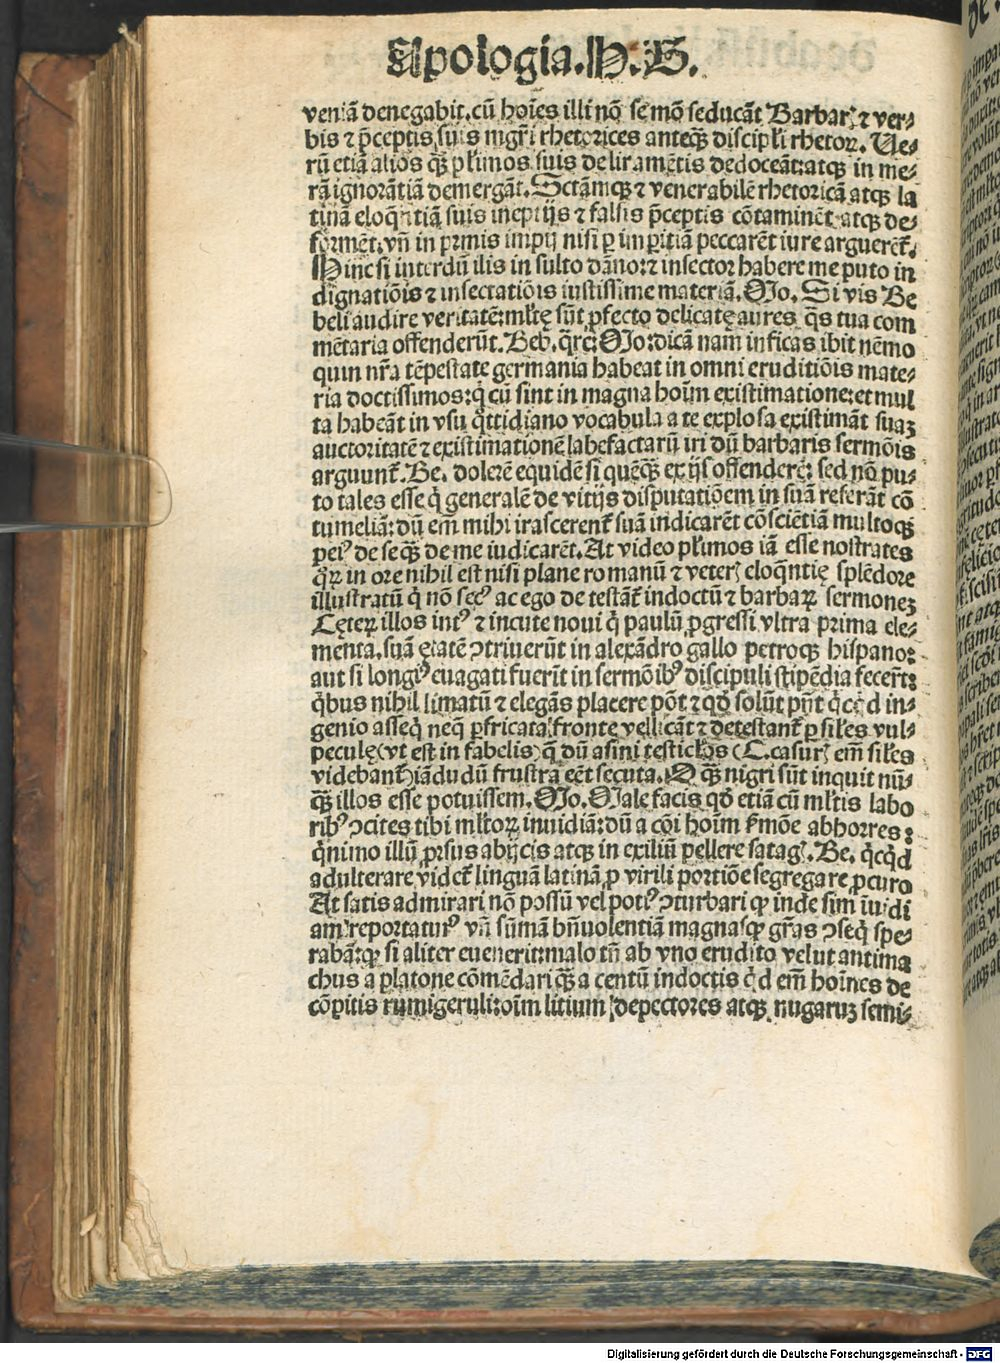 Apologia. H. B.
veniã denegabit. cũ hoĩes illi nõ se mõ seducãt Barbarꝭ ⁊ ver⸗
bis ⁊ p̃ceptis suis mgr̃i rhetorices anteqꝫ discipl̃i rhetoꝝ. Ue⸗
rũ etiã alios qꝫ pl̃imos suis deliramẽtis dedoceãt: atqꝫ in me⸗
rã ignorãtiã demergãt. Sctãmqꝫ ⁊ venerabilẽ rhetoricã atqꝫ la
tinã eloqñtiã suis ineptijs ⁊ falsis p̃ceptis cõtaminẽt atqꝫ de⸗
formẽt. vñ in prımis impij nisi ꝑ imꝑitiã peccarẽt iure arguerẽt̃.
Hinc si interdũ ilis in sulto dãnoꝛ⁊ insector habere me puto in
dignatiõis ⁊ insectatiõis iustissime materiã. Jo. Si vis Be
beli audire veritatẽ: ml̃tę sũt ꝓfecto delicatę aures q̃s tua com
mẽtaria offenderũt. Beb. q̃re: Jo: dicã nam inficas ibit nẽmo
quin nr̃a tẽpestate germania habeat in omni eruditiõis mate⸗
ria doctissimos: q̇ cũ sint in magna hoĩm existimatione: et mul
ta habeãt in vsu q̃ttidiano vocabula a te explosa existimãt suaꝫ
auctoritatẽ ⁊ existimationẽ labefactarũ iri dũ barbaris sermõis
arguunt̃. Be. dolerẽ equidẽ si quẽqꝫ ex ijs offenderẽ: sed nõ pu⸗
to tales esse q̇ generalẽ de vitijs disputatiõem in suã referãt cõ
tumeliã: dũ em̃ mihi irascerent̃ suã indicarẽt cõsciẽtiã multoqꝫ
peiꝰ de se qꝫ de me iudicarẽt. At video pl̃imos iã esse nostrates
q̇ꝝ in ore nihil est nisi plane romanũ ⁊ veterꝭ eloqñtię splẽdore
illustratũ q̇ nõ secꝰ ac ego detestãt̃ indoctũ ⁊ barbaꝝ sermoneꝫ
Cęteꝝ illos intꝰ ⁊ incute noui q̇ paulũ ꝓgressi vltra prima ele⸗
menta, suã ętatẽ ꝯtriuerũt in alexãdro gallo petroqꝫ hispano:
aut si longiꝰ euagati fuerĩt in sermõibꝰ discipuli stipẽdia fecerĩt:
q̇bus nihil limatũ ⁊ elegãs placere põt ⁊ qđ solũt pñt q̇cq̇d in⸗
genio asseq̇ neq̇ ꝑfricata fronte vellicãt ⁊ detestant̃ ꝑ sil̃es vul⸗
peculę (vt est in fabelis) q̃ dũ asini testicl̃os (C. casurꝭ em̃ sil̃es
videbant̃) iãdudũ frustra eẽt secuta. O qꝫ nigri sũt inquit nũ⸗
qꝫ illos esse potuissem. Jo. Male facis qđ etiã cũ ml̃tis labo
ribꝰ ꝯcites tibi ml̃toꝝ inuidiã: dũ a cõi hoĩm ẜmõe abhorres:
q̇nimo illũ ꝓrsus abijcis atqꝫ in exiliũ pellere satagꝭ. Be. q̇cq̇d
adulterare videt̃ linguã latinã ꝓ virili portiõe segregare ꝓcuro
At satis admirari nõ possũ vel potiꝰ ꝯturbari ꝙ inde sim ĩuidi
am reportaturꝰ vñ sũmã bñuolentiã magnasqꝫ gr̃as ꝯseq̇ spe⸗
rabã: ꝙ si aliter euenerit: malo tñ ab vno erudito velut antima
chus a platone cõmẽdari qꝫ a centũ indoctis q̇d em̃ hoĩnes de
cõpitis rumigeruli: oĩm litium depectores atqꝫ nugaruꝫ semi⸗
Digitalisierung gefördert durch die Deutsche Forschungsgemeinschaft - DFG